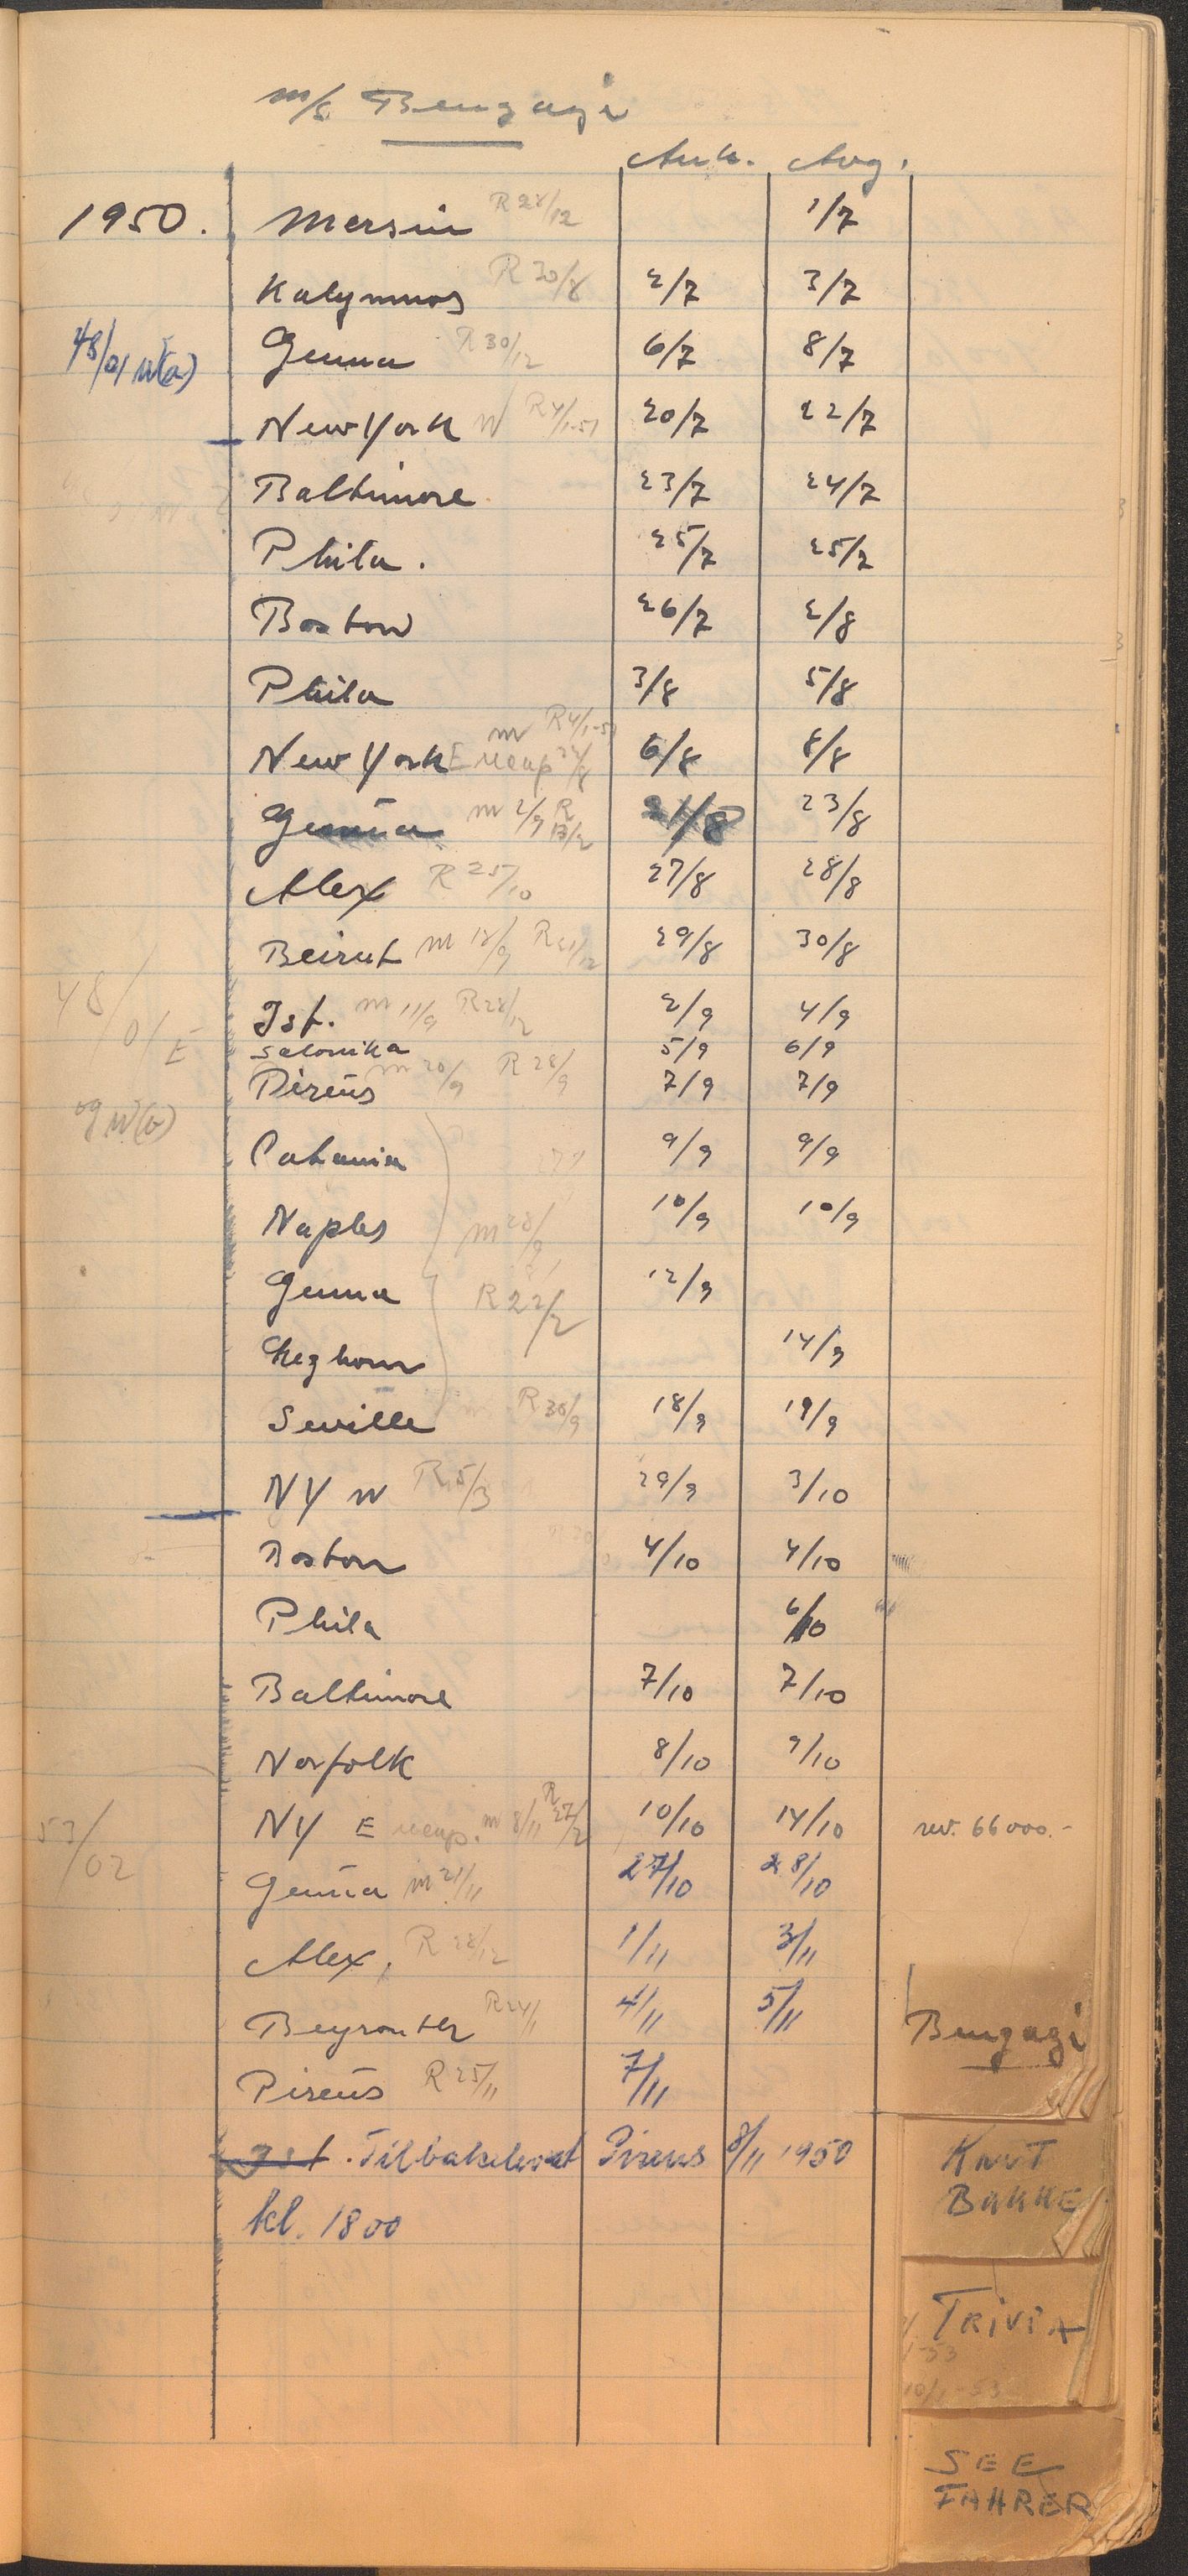 m/s Bengazi
Ank. Avg.
1950. Mersin R 28/12 1/7
Kalymnos R 30/8 2/7 3/7
48/01 W(a) Genua R 30/12 6/7 8/7
New York W R 4/1-51 20/7 22/7
Baltimore 23/7 24/7
Phila. 25/7 25/7
Boston 26/7 2/8
Phila 3/8 5/8
New York E m R 4/1-51 6/8 8/8
Genua m 2/9 R 13/2 21/8 23/8
Alex R 25/10 27/8 28/8
Beirut m 18/9 R 21/12 29/8 30/8
48/01 E Ist. m 11/9 R 28/12 2/9 4/9
Salonika 5/9 6/9
Pireus m 20/9 R 28/9 7/9 7/9
og W(a) Catania 9/9 9/9
Naples m 28/9 10/9 10/9
Genua R 22/2 12/9
Leghorn 14/9
Seville R 30/9 18/9 19/9
NY W R 5/3 29/9 3/10
Boston 4/10 4/10
Phila 6/10
Baltimore 7/10 7/10
Norfolk 8/10 9/10
53/02 NY E m 8/11 R 27/2 10/10 14/10 rev. 66000.-
Genua m 21/11 27/10 28/10
Alex. R 28/12 1/11 3/11
Beyrouth R 24/1 4/11 5/11
Bengazi
Pireus R 25/11 7/11
Ist. Tilbakelevert Pireus 8/11 1950
kl. 1800
KNUT
BAKKE
TRIVIA
10/1-53
SEE
FAHRER